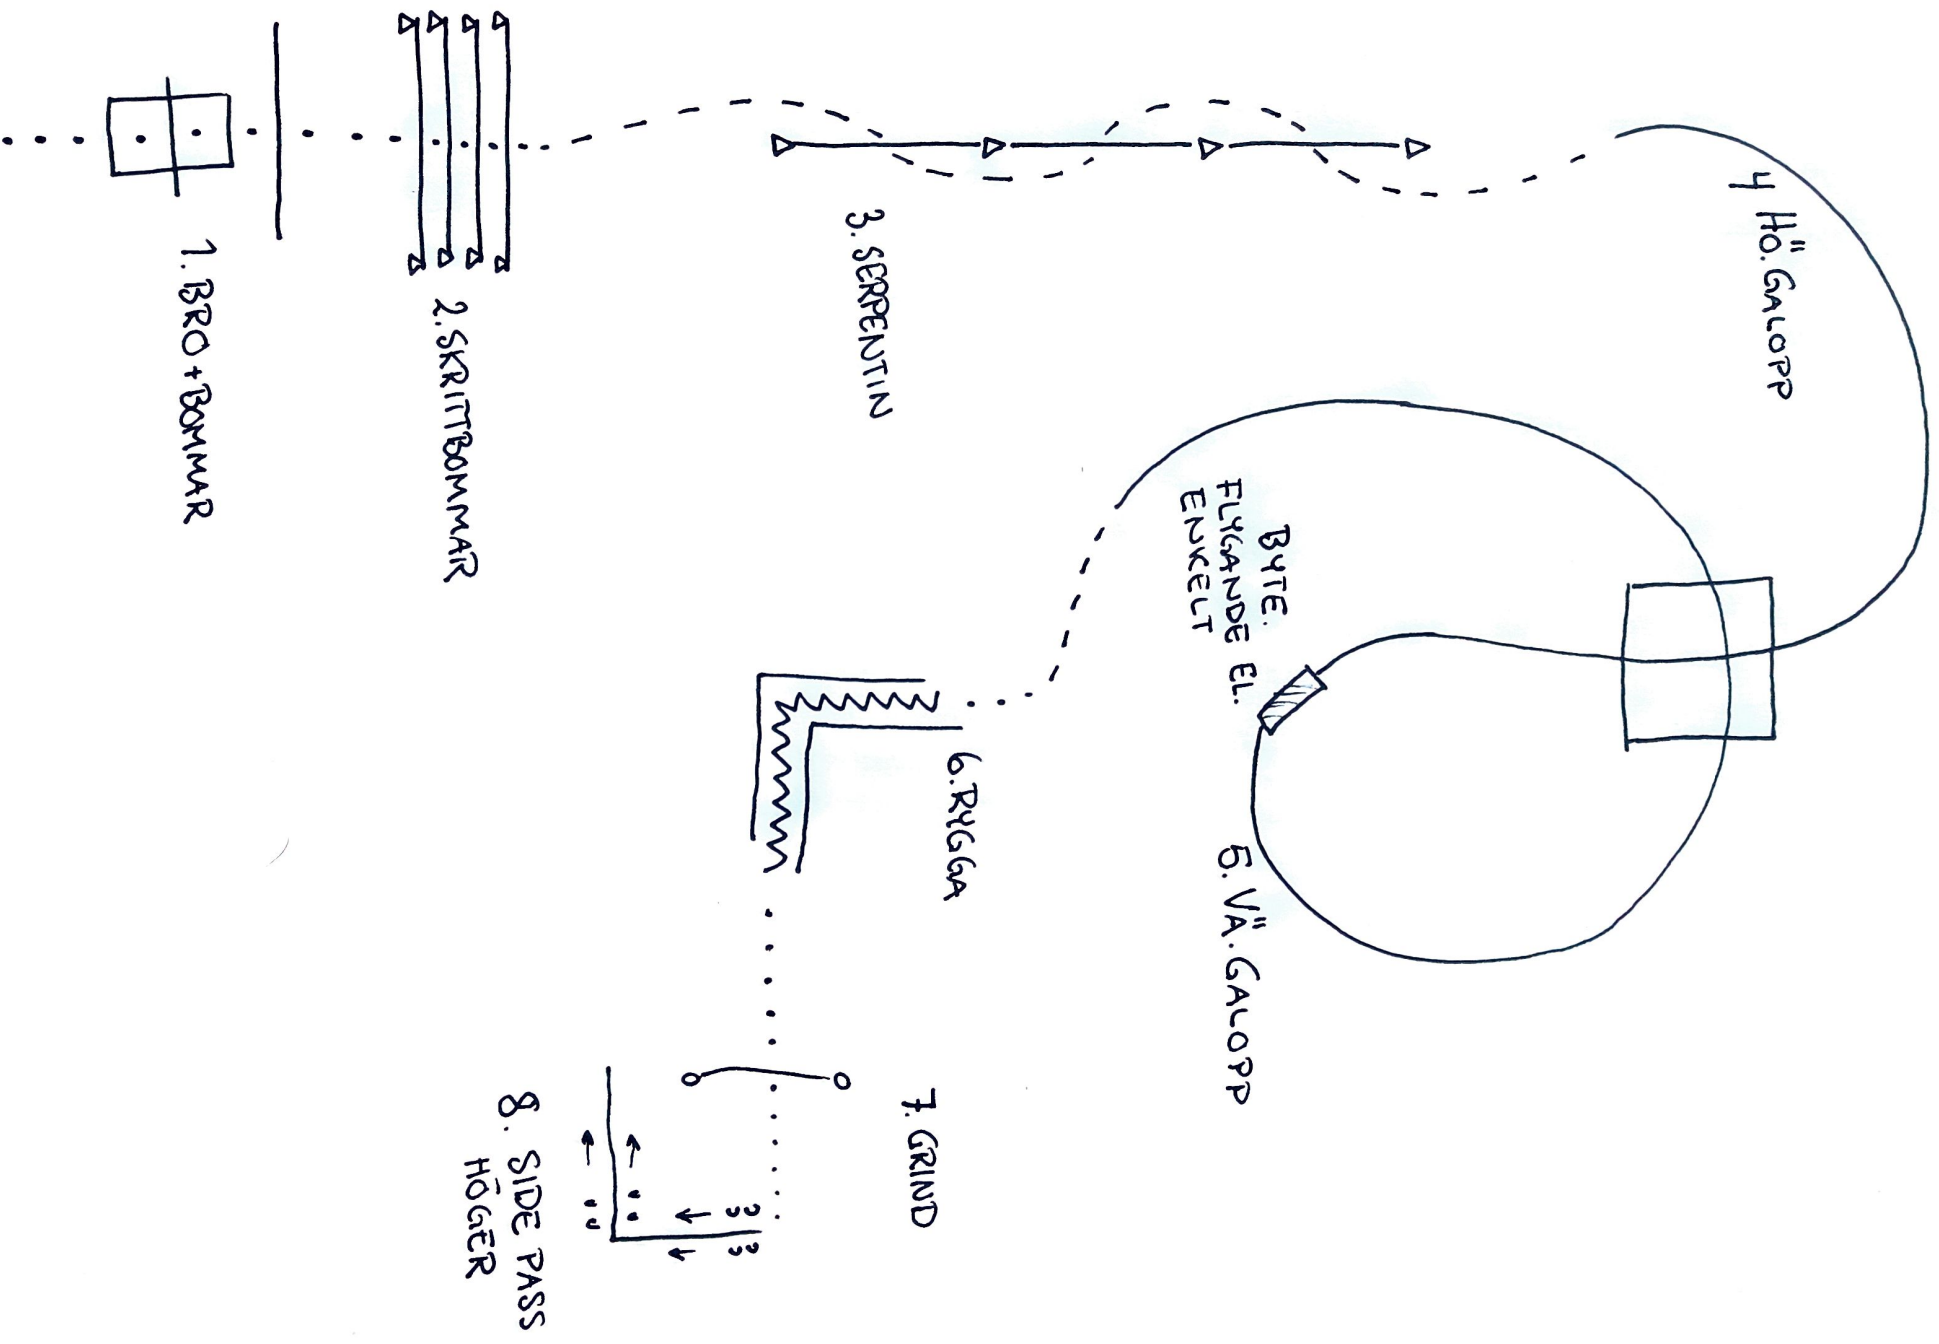 1. BRO + BOMMAR
2. SKRITTBOMMAR
3. SERPENTIN
4 HÖ. GALOPP
BYTE.
FLYGANDE EL.
ENKELT
5. VÄ. GALOPP
6. RYGGA
7. GRIND
8. SIDE PASS
HÖGER